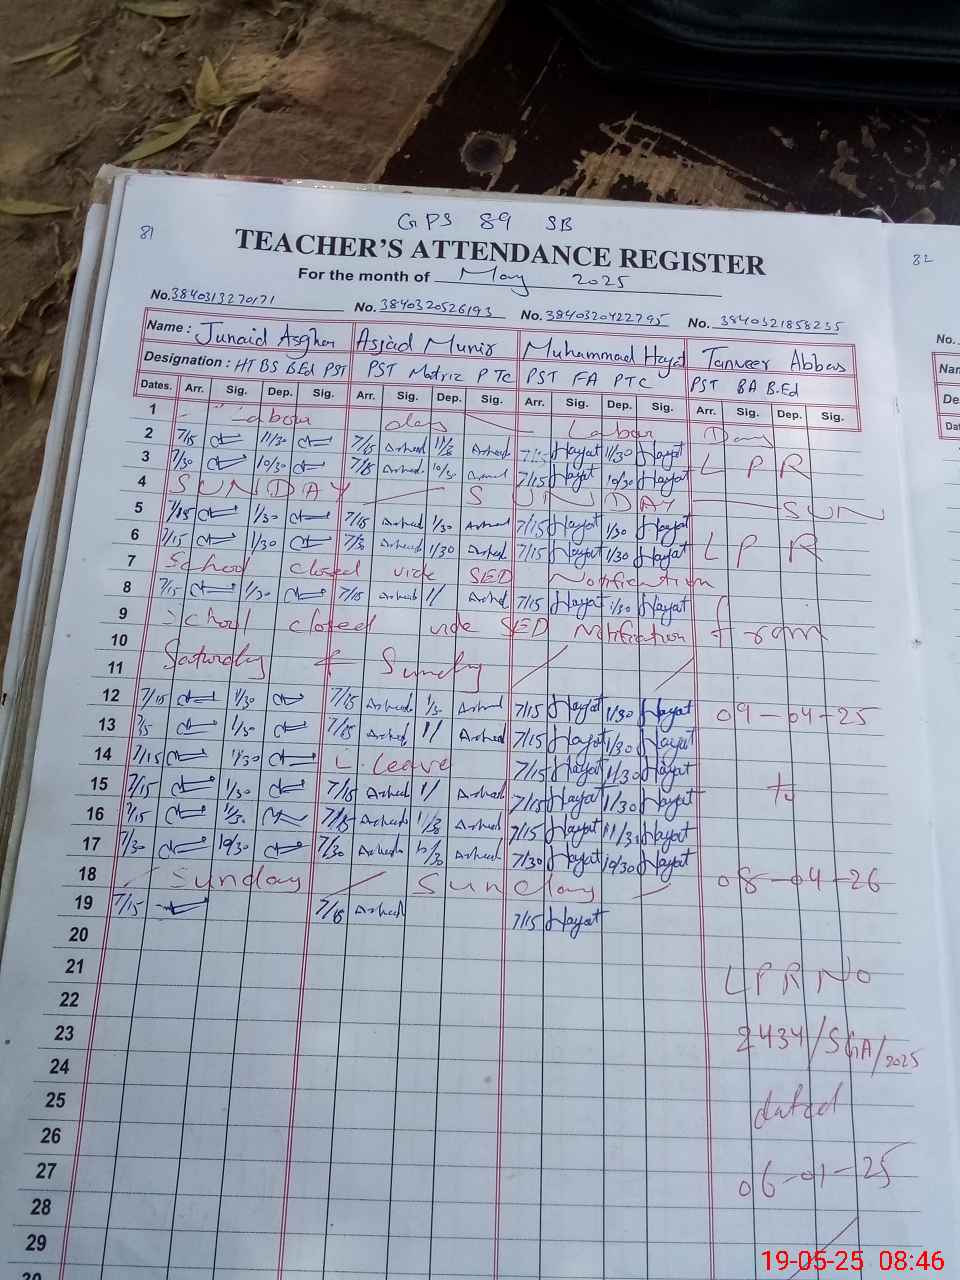 GPS 89 SB
81
TEACHER'S ATTENDANCE REGISTER
82
For the month of May 2025
No. 3840313270171 No. 3840320526193 No. 3840320422795 No. 3840321858235 No.
Name : Junaid Asghar Asjad Munir Muhammad Hayat Tanveer Abbas Nam
Designation : HT BS BEd PST PST Matric PTC PST FA PTC PST BA B.Ed De
Dates. Arr. Sig. Dep. Sig. Arr. Sig. Dep. Sig. Arr. Sig. Dep. Sig. Arr. Sig. Dep. Sig. Dat
1 Labour day Labour Day
2 7/15 11/30 7/15 Hayat 11/30 Hayat
3 7/30 10/30 10/30 7/15 Hayat 10/30 Hayat L P R
4 SUNDAY SUNDAY SUN
5 7/15 1/30 7/15 1/30 7/15 Hayat 1/30 Hayat
6 7/15 1/30 7/30 1/30 7/15 Hayat 1/30 Hayat L P R
7 School closed vide SED Notification
8 7/15 1/30 7/15 7/15 Hayat 1/30 Hayat
9 School closed vide SED Notification from
10
11 Saturday & Sunday
12 7/15 1/30 7/15 7/15 Hayat 1/30 Hayat 09-04-25
13 1/30 7/15 7/15 Hayat 1/30 Hayat
14 7/15 1/30 L. Leave 7/15 Hayat 1/30 Hayat
15 7/15 1/30 7/15 7/15 Hayat 1/30 Hayat to
16 7/15 7/15 7/15 Hayat 11/31 Hayat
17 7/30 10/30 7/30 7/30 Hayat 10/30 Hayat
18 Sunday Sunday 08-04-26
19 7/15 7/15 7/15 Hayat
20
21 LPR NO
22
23 2434/SGA/2025
24
25 dated
26
27 06-01-25
28
29
30
19-05-25 08:46